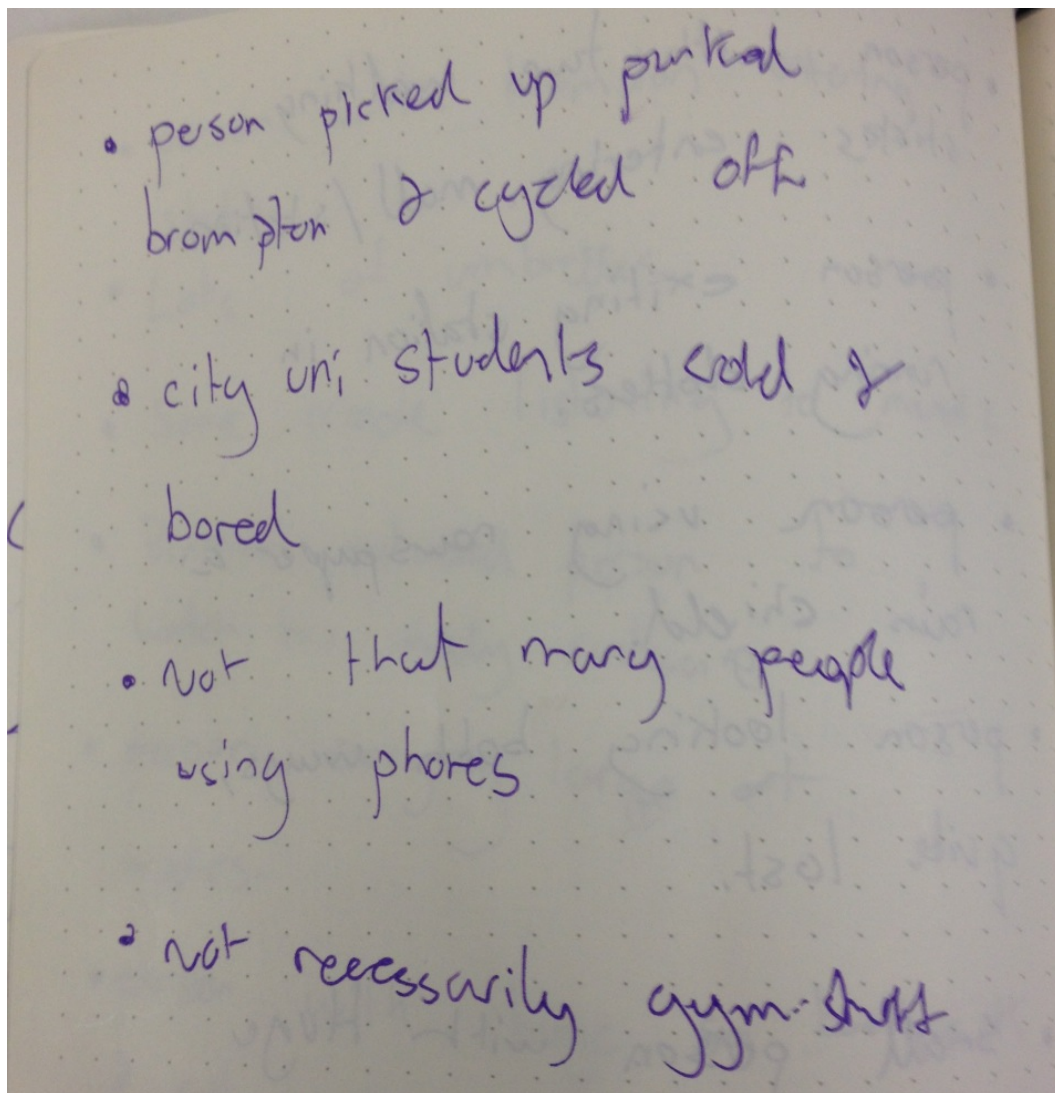 • person picked up parked
brompton & cycled off
• city uni students cold &
bored
• not that many people
using phones
• not necessarily gym stuff